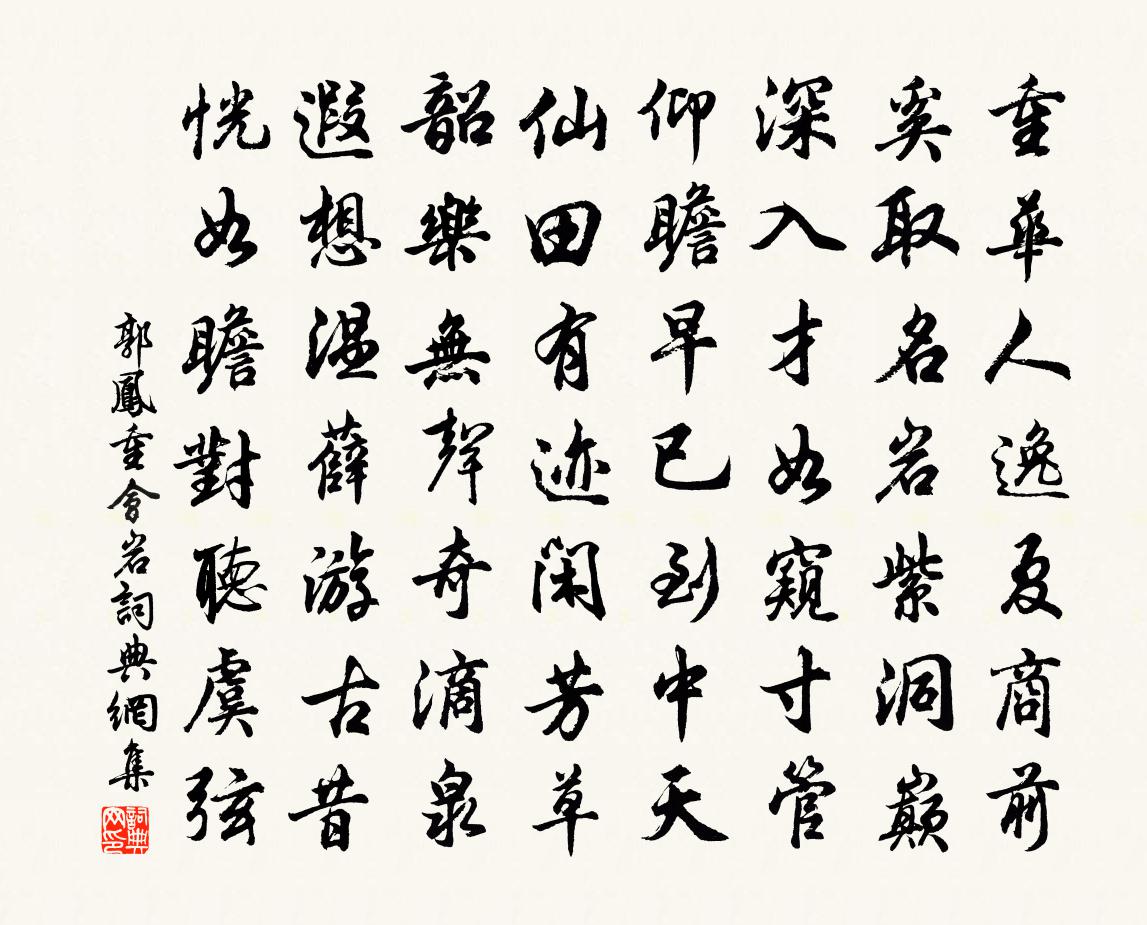 重華人逸夏商前
奚取名岩紫洞巔
深入才如窺寸管
仰瞻早已到中天
仙田有迹閑芳草
韶樂無聲奇滴泉
遐想温薛游古昔
恍如瞻對聽虞弦
郭鳳重會岩詞典網集
詞典网印